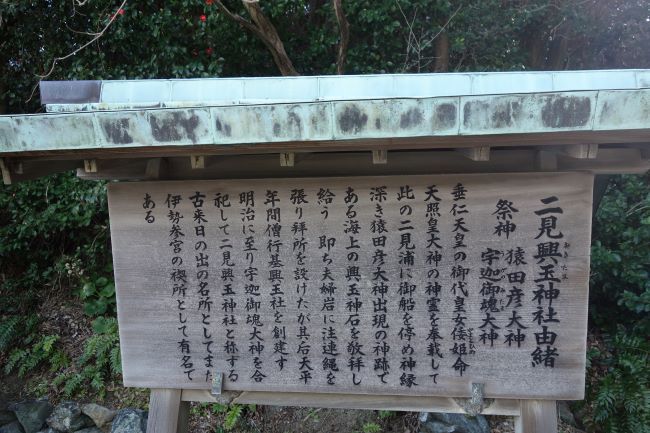 二見興玉神社由緒
おきたま
祭神 猿田彦大神
宇迦御魂大神
垂仁天皇の御代皇女倭姫命
やまとひめ
天照皇大神の神霊を奉載して
此の二見浦に御船を停め神縁
深き猿田彦大神出現の神跡で
ある海上の興玉神石を敬拝し
給う 即ち夫婦岩に注連縄を
張り拝所を設けたが其后天平
年間僧行基興玉社を創建す
明治に至り宇迦御魂大神を合
祀して二見興玉神社と称する
古来日の出の名所としてまた
伊勢参宮の禊所として有名で
ある